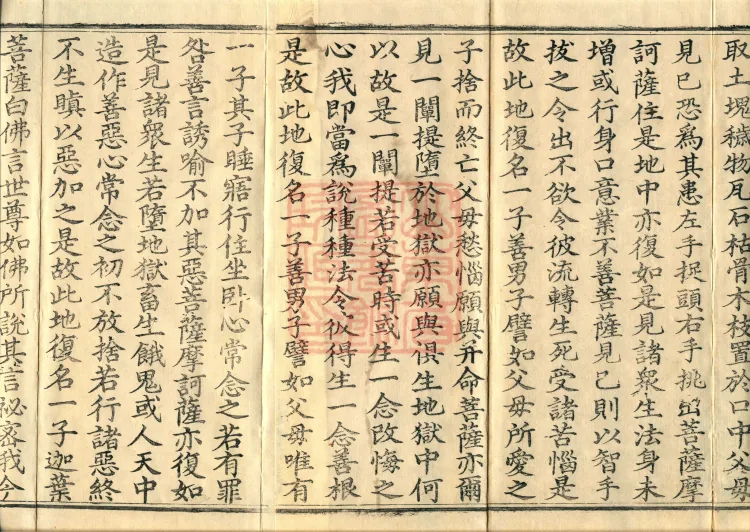 取土塊穢物瓦石枯骨木枝置於口中父毋
見已恐爲其患左手捉頭右手挑出菩薩摩
訶薩住是地中亦復如是見諸衆生法身未
增或行身口意業不善菩薩見已則以智手
拔之令出不欲令彼流轉生死受諸苦惱是
故此地復名一子善男子譬如父毋所愛之
子捨而終亡父毋愁惱願與并命菩薩亦爾
見一闡提墮於地獄亦願與俱生地獄中何
以故是一闡提若受苦時或生一念改悔之
心我即當爲說種種法令彼得生一念善根
是故此地復名一子善男子譬如父毋唯有
一子其子睡寤行住坐卧心常念之若有罪
咎善言誘喻不加其惡菩薩摩訶薩亦復如
是見諸衆生若墮地獄畜生餓鬼或人天中
造作善惡心常念之初不放捨若行諸惡終
不生瞋以惡加之是故此地復名一子迦葉
菩薩白佛言世尊如佛所說其言祕密我今